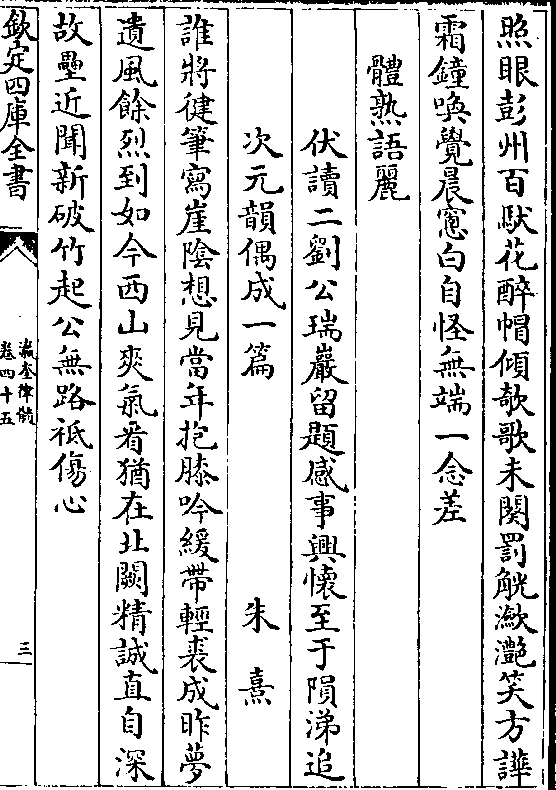 照眼彭州百馱花醉帽傾欹歌未闋罰觥瀲灔笑方譁
霜鐘喚覺晨窻白自怪無端一念差
體熟語麗
伏讀二劉公瑞巖留題感事興懷至于隕涕追
次元韻偶成一篇　朱熹
誰將健筆寫崖陰想見當年抱膝吟緩帶輕裘成昨夢
遺風餘烈到如今西山爽氣看猶在北闕精誠直自深
故壘近聞新破竹起公無路祇傷心
欽定四庫全書
瀛奎律髓
卷四十五
三